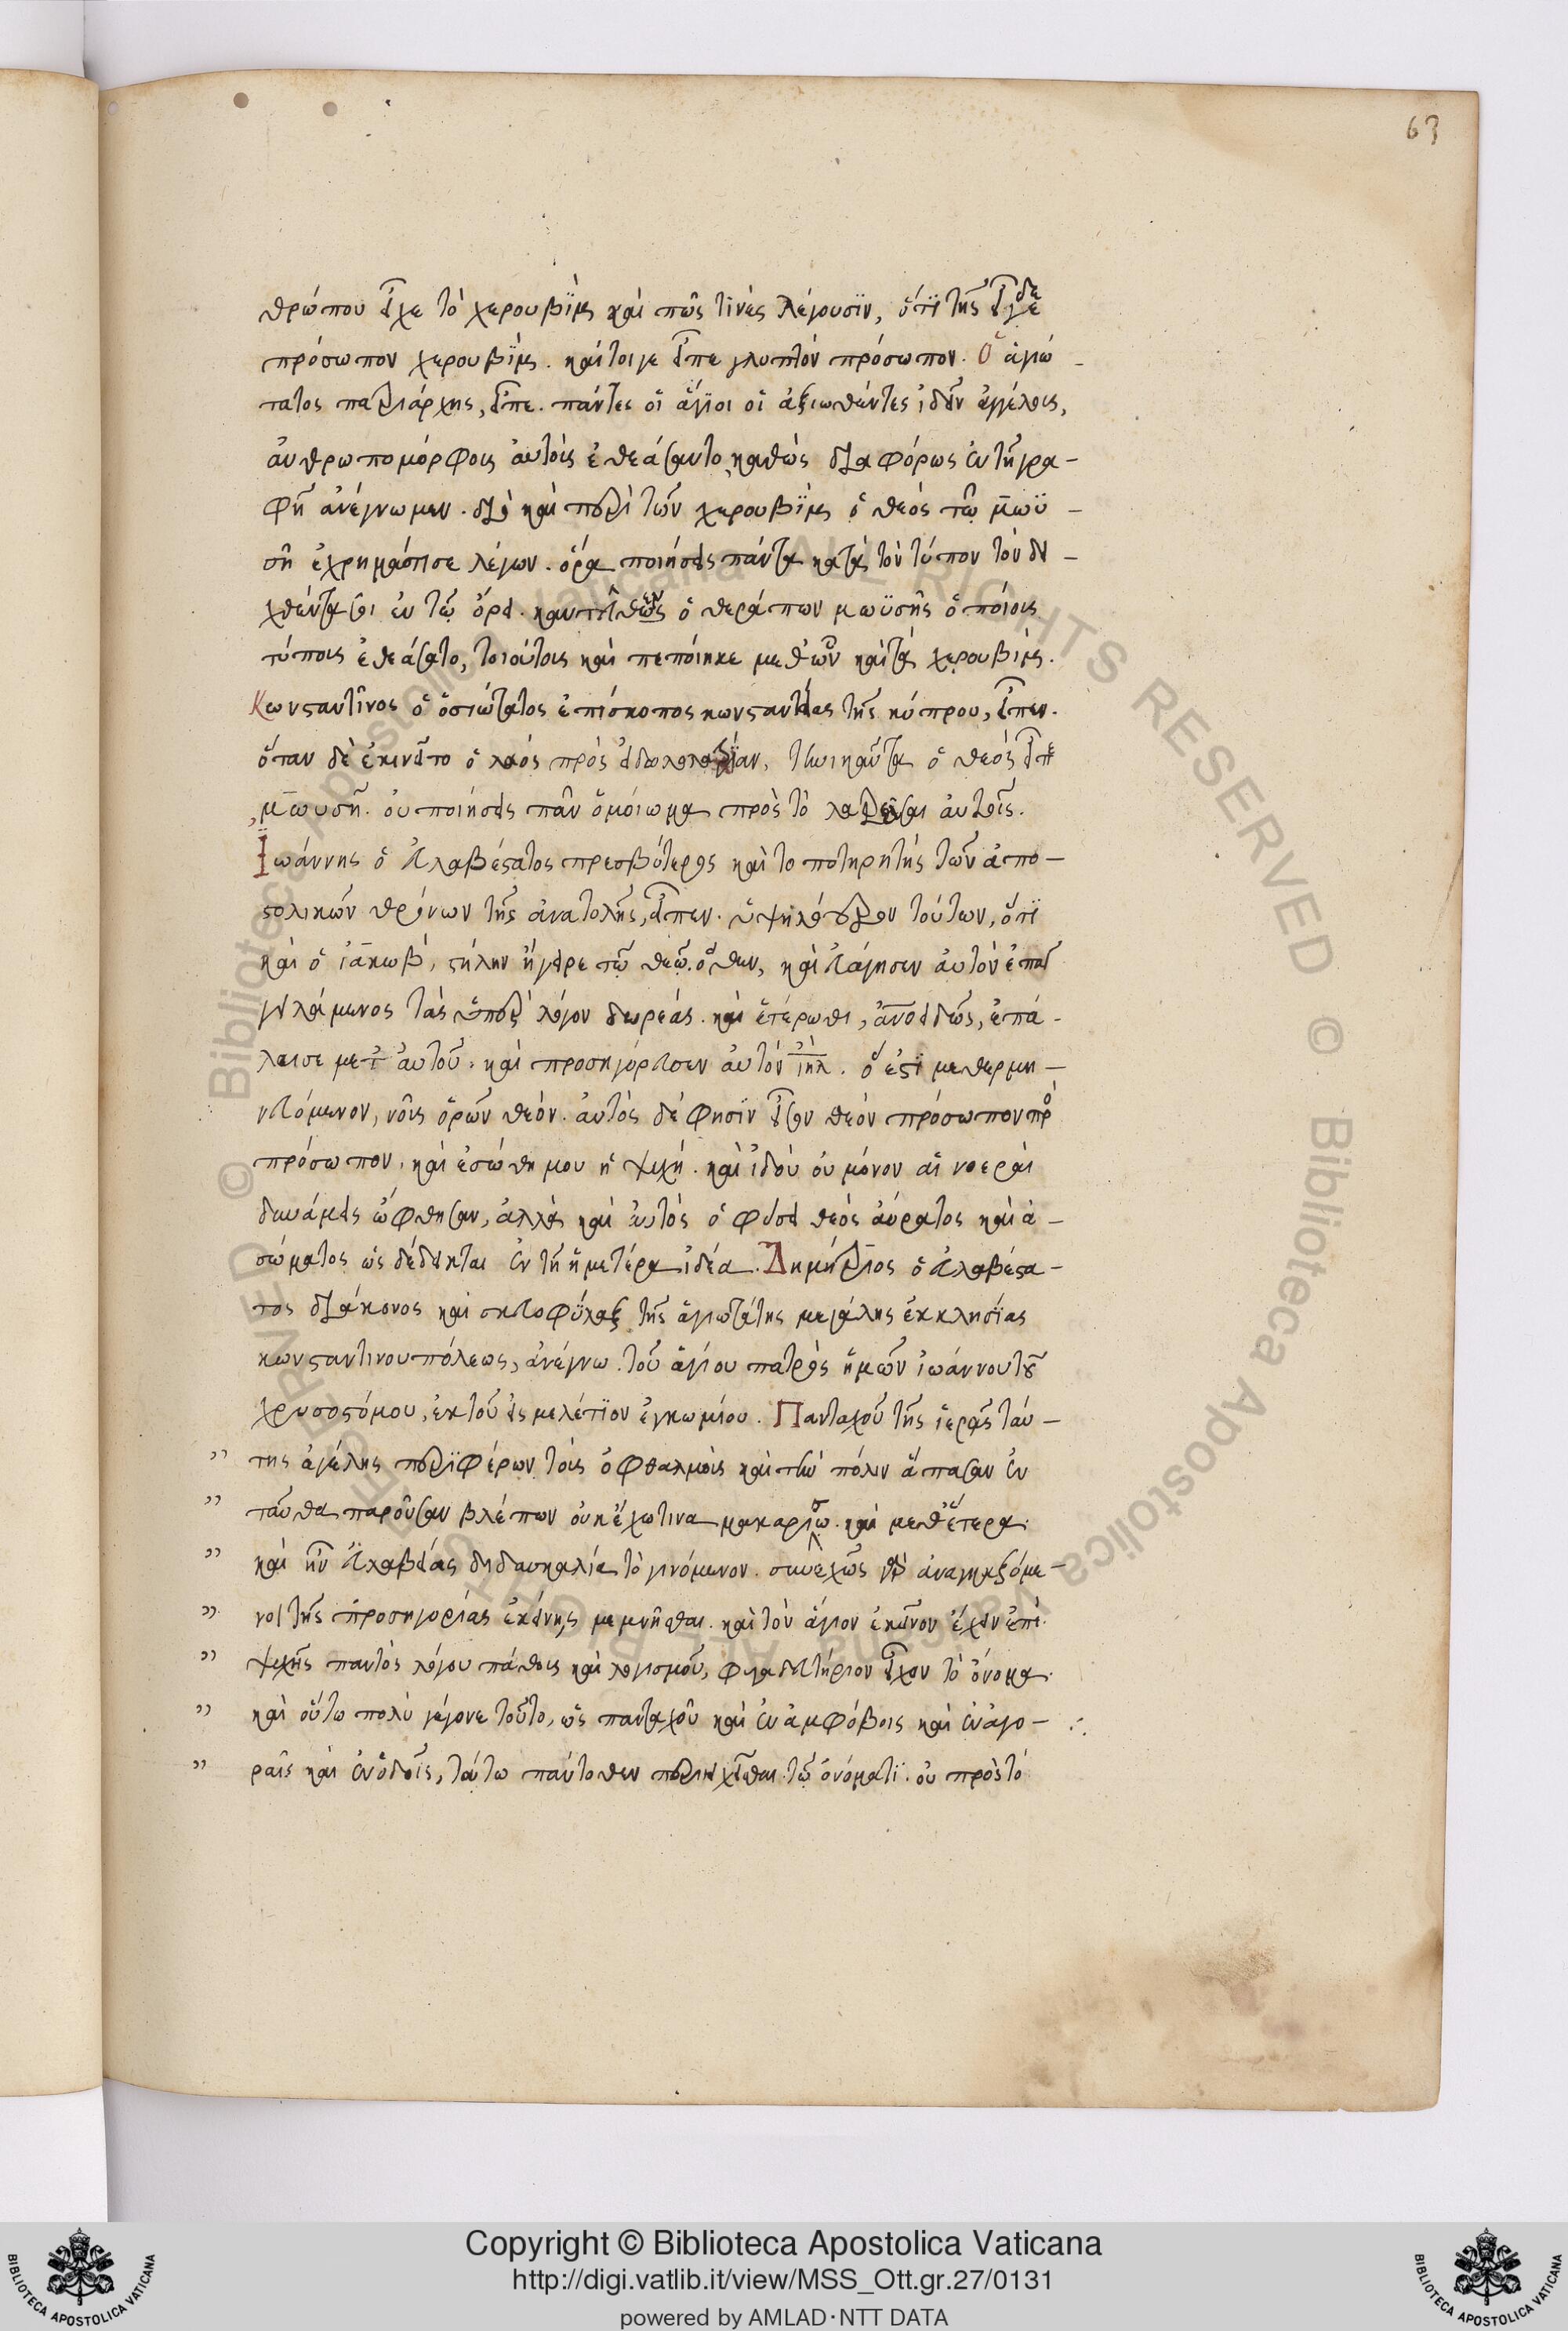 63
θρώπου εἶχε τὸ χερουβὶμ καὶ πῶς τινὲς λέγουσϊν, ὅτϊ τῆς εἶδε
πρόσωπον χερουβϊμ. καίτοιγε εἶπε γλυπτὸν πρόσωπον. Ὁ ἁγιώ-
τατος πατριάρχης, εἶπε. πάντες οἱ ἅγϊοι οἱ ἀξιωθέντες ἰδεῖν ἀγγέλους,
ἀνθρωπομόρφους αὐτοὺς ἐθεάσαντο, καθὼς διαφόρως ἐν τῆ γρα-
φῆ ἀνέγνωμεν. διὸ καὶ περὶ τῶν χερουβὶμ ὁ θεὸς τῶ μωϋ-
σῆ ἐχρημάτισε λέγων. ὅρα ποιήσεις πάντα κατὰ τὸν τύπον τὸν δει-
χθέντα σοι ἐν τῶ ὄρει. ὁ θεράπων μωϋσῆς ὁποίους
τύπους ἐθεάσατο, τοιούτους καὶ πεποίηκε μεθ' ὧν καὶ τὰ χερουβίμ.
Κωνσταντῖνος ὁ ὁσιώτατος ἐπίσκοπος κωνσταντείας τῆς κύπρου, εἶπεν.
ὅταν δὲ ἐκινεῖτο ὁ λαὸς πρὸς εἰδωλολατρείαν, τηνικαῦτα ὁ θεὸς εἶπε
μωυσῆ. οὐ ποιήσεις πᾶν ὁμοίωμα πρὸς τὸ λατρεῦσαι αὐτοῖς.
Ἰωάννης ὁ εὐλαβέστατος πρεσβύτερος καὶ τοποτηρητὴς τῶν ἀπο-
στολικῶν θρόνων τῆς ἀνατολῆς, εἶπεν. ὑψηλότερον τούτων, ὅτϊ
καὶ ὁ ἰακωβ, στήλην ἤγειρε τῶ θεῶ. ὅθεν, καὶ εὐλόγησεν αὐτὸν ἐπαγ
γειλάμενος τὰς ὑπὲρ λόγον δωρεάς. καὶ ἑτέρωθι, ἀνοειδῶς, ἐπά-
λαισε μετ' αὐτοῦ. καὶ προσηγόρευσεν αὐτὸν ιηλ. ὅ ἐστϊ μεθερμη-
νευόμενον, νοῦς ὁρῶν θεόν. αὐτὸς δέ φησϊν εἶδον θεὸν πρόσωπον πρὸ
πρόσωπον, καὶ ἐσώθη μου ἡ ψυχή. καὶ ἰδοὺ οὐ μόνον αἱ νοεραὶ
δυνάμεις ὤφθησαν, ἀλλὰ καὶ αὐτὸς ὁ φύσει θεὸς ἀόρατος καὶ ἀ-
σώματος ὡς δέδεικται ἐν τῆ ἡμετέρα ἰδέα. Δημήτριος ὁ εὐλαβέστα-
τος διάκονος καὶ σκευοφύλαξ τῆς ἁγιωτάτης μεγάλης ἐκκλησίας
κωνσταντινουπόλεως, ἀνέγνω. τοῦ ἁγίου πατρὸς ἡμῶν ἰωάννου τοῦ
χρυσοστόμου, ἐκ τοῦ εἰς μελέτϊον ἐγκωμίου. Πανταχοῦ τῆς ἱερᾶς ταύ-
της ἀγέλης περϊφέρων τοὺς ὀφθαλμοὺς καὶ τὴν πόλιν ἅπασαν ἐν
ταῦθα παροῦσαν βλέπων οὐκ ἔχω τινα μακαρίσω. καὶ μεθ' ἕτερα.
καὶ ἦν εὐλαβείας διδασκαλία τὸ γινόμενον. συνεχῶς γὰρ ἀναγκαζόμε-
νοι τῆς προσηγορίας ἐκείνης μεμνῆσθαι. καὶ τὸν ἅγιον ἐκεῖνον ἔχειν ἐπὶ
ψυχῆς παντὸς λόγου πάθους καὶ λογισμοῦ, φυγαδευτήριον εἶχον τὸ ὄνομα.
καὶ οὕτω πολὺ γέγονε τοῦτο, ὡς πανταχοῦ καὶ ἐν ἀμφόβοις καὶ ἐν ἀγο-
ραῖς καὶ ἐν ὁδοῖς, τούτω πάντοθεν περιηχεῖσθαι τῶ ὀνόματϊ. οὐ πρὸς τὸ
Copyright © Biblioteca Apostolica Vaticana
http://digi.vatlib.it/view/MSS_Ott.gr.27/0131
powered by AMLAD·NTT DATA